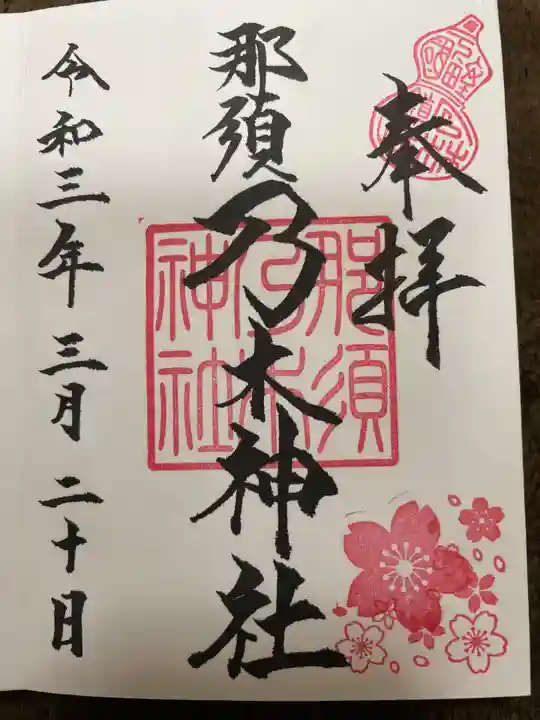 奉拝
那須乃木神社
令和三年三月二十日
那須
乃木
神社